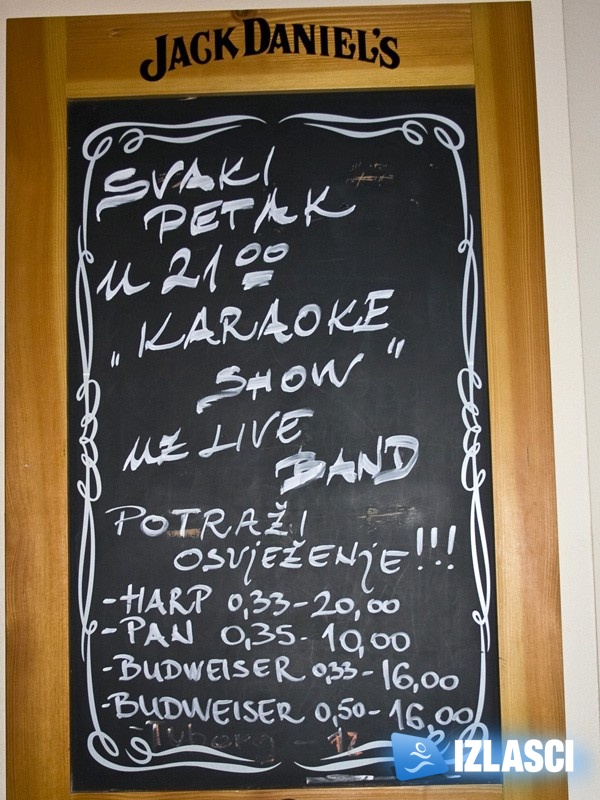 JACK DANIEL'S
SVAKI
PETAK
u 21 00
„KARAOKE
SHOW"
UZ LIVE
BAND
POTRAŽI
OSVJEŽENJE!!!
-HARP 0,33-20,00
-PAN 0,35-10,00
-BUDWEISER 0,33-16,00
-BUDWEISER 0,50-16,00
-Tuborg - 12
IZLASCI